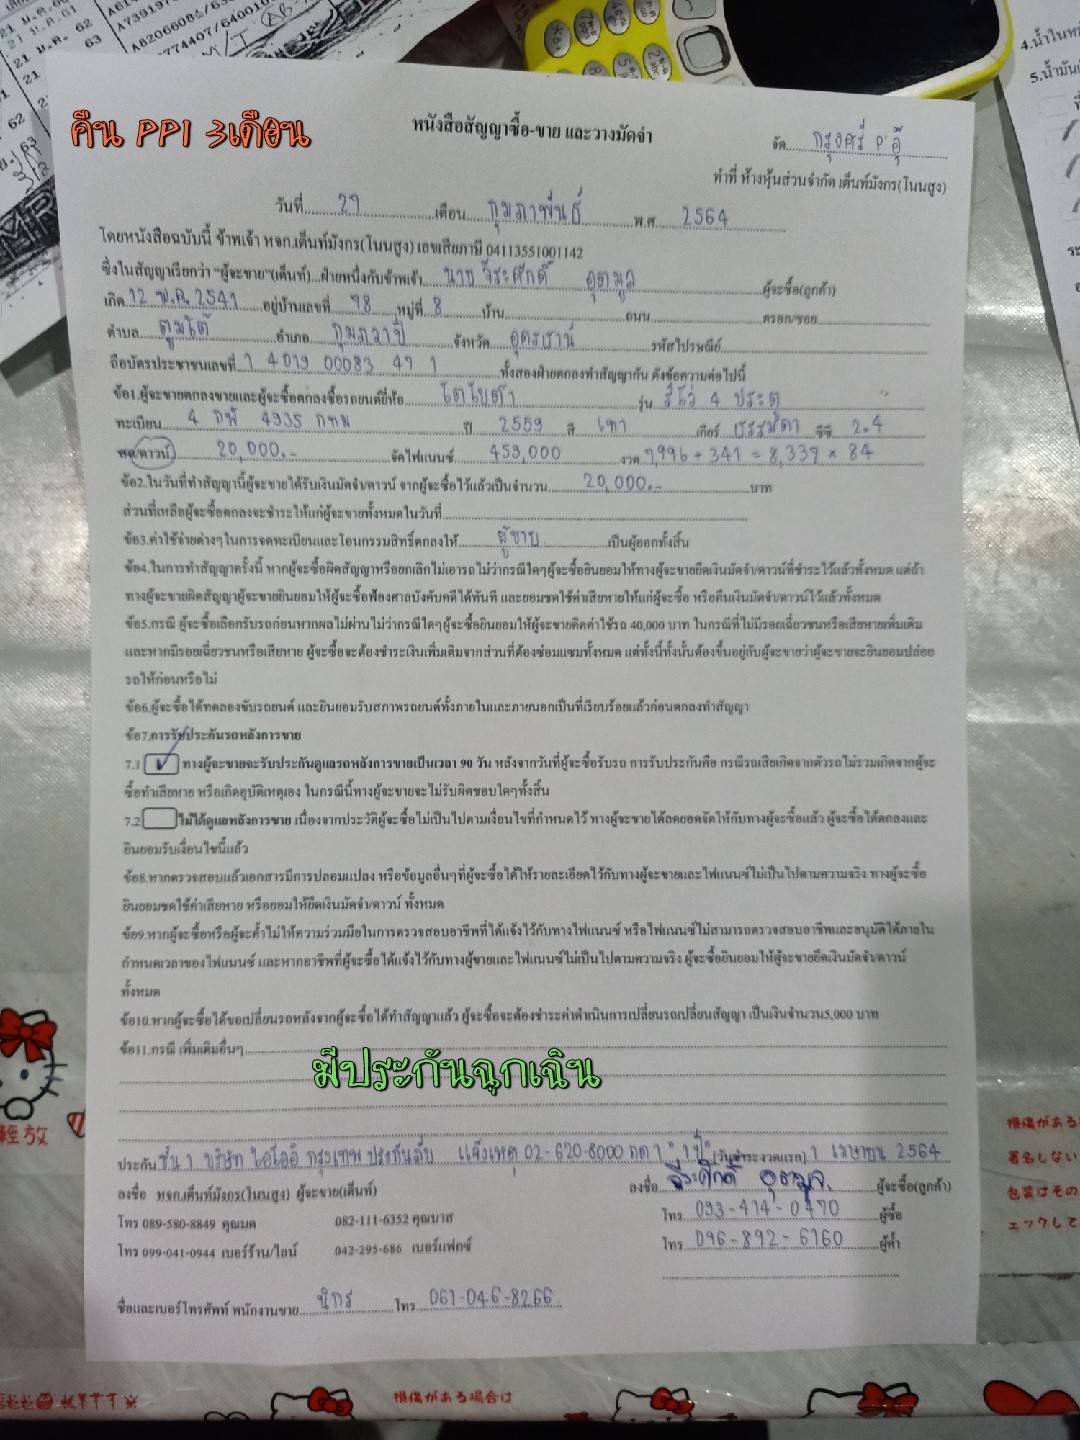 คืน PPI 3เดือน
หนังสือสัญญาซื้อ-ขาย และวางมัดจำ
จัด กรุงศรี P'อุ๊
ทำที่ ห้างหุ้นส่วนจำกัด เต็นท์มังกร(โนนสูง)
วันที่ 27 เดือน กุมภาพันธ์ พ.ศ. 2564
โดยหนังสือฉบับนี้ ข้าพเจ้า หจก.เต็นท์มังกร(โนนสูง) เลขเสียภาษี 04113551001142
ซึ่งในสัญญาเรียกว่า "ผู้จะขาย"(เต็นท์)...ฝ่ายหนึ่งกับข้าพเจ้า นาย วีระศักดิ์ อุตมูล ผู้จะซื้อ(ลูกค้า)
เกิด 12 พ.ค. 2541 อยู่บ้านเลขที่ 98 หมู่ที่ 8 บ้าน ถนน ตรอก/ซอย
ตำบล ตูมใต้ อำเภอ กุมภวาปี จังหวัด อุดรธานี รหัสไปรษณีย์
ถือบัตรประชาชนเลขที่ 1 4019 00083 47 1 ทั้งสองฝ่ายตกลงทำสัญญากัน ดังข้อความต่อไปนี้
ข้อ1.ผู้จะขายตกลงขายและผู้จะซื้อตกลงซื้อรถยนต์ยี่ห้อ โตโยต้า รุ่น รีโว่ 4 ประตู
ทะเบียน 4 กฬ 4935 กทม ปี 2559 สี เทา เกียร์ ธรรมดา ซีซี 2.4
สด/ดาวน์ 20,000.- จัดไฟแนนซ์ 459,000 งวด 7,996 + 341 = 8,337 x 84
ข้อ2.ในวันที่ทำสัญญานี้ผู้จะขายได้รับเงินมัดจำ/ดาวน์ จากผู้จะซื้อไว้แล้วเป็นจำนวน 20,000.- บาท
ส่วนที่เหลือผู้จะซื้อตกลงจะชำระให้แก่ผู้จะขายทั้งหมดในวันที่
ข้อ3.ค่าใช้จ่ายต่างๆในการจดทะเบียนและโอนกรรมสิทธิ์ตกลงให้ ผู้ขาย เป็นผู้ออกทั้งสิ้น
ข้อ4.ในการทำสัญญาครั้งนี้ หากผู้จะซื้อผิดสัญญาหรือยกเลิกไม่เอารถ ไม่ว่ากรณีใดๆผู้จะซื้อยินยอมให้ทางผู้จะขายยึดเงินมัดจำ/ดาวน์ที่ชำระไว้แล้วทั้งหมด แต่ถ้า
ทางผู้จะขายผิดสัญญาผู้จะขายยินยอมให้ผู้จะซื้อฟ้องศาลบังคับคดีได้ทันที และยอมชดใช้ค่าเสียหายให้แก่ผู้จะซื้อ หรือคืนเงินมัดจำ/ดาวน์ไว้แล้วทั้งหมด
ข้อ5.กรณี ผู้จะซื้อเลือกรับรถก่อนหากผลไม่ผ่าน ไม่ว่ากรณีใดๆผู้จะซื้อยินยอมให้ผู้จะขายคิดค่าใช้รถ 40,000 บาท ในกรณีที่ไม่มีรอยเฉี่ยวชนหรือเสียหายเพิ่มเติม
และหากมีรอยเฉี่ยวชนหรือเสียหาย ผู้จะซื้อจะต้องชำระเงินเพิ่มเติมจากส่วนที่ต้องซ่อมแซมทั้งหมด แต่ทั้งนี้ทั้งนั้นต้องขึ้นอยู่กับผู้จะขายว่าผู้จะขายจะยินยอมปล่อย
รถให้ก่อนหรือไม่
ข้อ6.ผู้จะซื้อได้ทดลองขับรถยนต์ และยินยอมรับสภาพรถยนต์ทั้งภายในและภายนอกเป็นที่เรียบร้อยแล้วก่อนตกลงทำสัญญา
ข้อ7.การรับประกันรถหลังการขาย
7.1 ✓ ทางผู้จะขายจะรับประกันดูแลรถหลังการขายเป็นเวลา 90 วัน หลังจากวันที่ผู้จะซื้อรับรถ การรับประกันคือ กรณีรถเสียเกิดจากตัวรถไม่รวมเกิดจากผู้จะ
ซื้อทำเสียหาย หรือเกิดอุบัติเหตุเอง ในกรณีนี้ทางผู้จะขายจะไม่รับผิดชอบใดๆทั้งสิ้น
7.2 ไม่ได้ดูแลหลังการขาย เนื่องจากประวัติผู้จะซื้อไม่เป็นไปตามเงื่อนไขที่กำหนดไว้ ทางผู้จะขายได้ลดยอดจัดให้กับทางผู้จะซื้อแล้ว ผู้จะซื้อได้ตกลงและ
ยินยอมรับเงื่อนไขนี้แล้ว
ข้อ8.หากตรวจสอบแล้วเอกสารมีการปลอมแปลง หรือข้อมูลอื่นๆที่ผู้จะซื้อได้ให้รายละเอียดไว้กับทางผู้จะขายและไฟแนนซ์ไม่เป็นไปตามความจริง ทางผู้จะซื้อ
ยินยอมชดใช้ค่าเสียหาย หรือยอมให้ยึดเงินมัดจำ/ดาวน์ ทั้งหมด
ข้อ9.หากผู้จะซื้อหรือผู้จะค้ำไม่ให้ความร่วมมือในการตรวจสอบอาชีพที่ได้แจ้งไว้กับทางไฟแนนซ์ หรือไฟแนนซ์ไม่สามารถตรวจสอบอาชีพและอนุมัติได้ภายใน
กำหนดเวลาของไฟแนนซ์ และหากอาชีพที่ผู้จะซื้อได้แจ้งไว้กับทางผู้ขายและไฟแนนซ์ไม่เป็นไปตามความจริง ผู้จะซื้อยินยอมให้ผู้จะขายยึดเงินมัดจำ/ดาวน์
ทั้งหมด
ข้อ10.หากผู้จะซื้อได้ขอเปลี่ยนรถหลังจากผู้จะซื้อได้ทำสัญญาแล้ว ผู้จะซื้อจะต้องชำระค่าดำเนินการเปลี่ยนรถเปลี่ยนสัญญา เป็นเงินจำนวน5,000 บาท
ข้อ11.กรณี เพิ่มเติมอื่นๆ
มีประกันฉุกเฉิน
ประกัน ชั้น 1 บริษัท ไอโออิ กรุงเทพ ประกันภัย แจ้งเหตุ 02-620-8000 กด 1 "1 ปี" (วันชำระงวดแรก) 1 เมษายน 2564
ลงชื่อ หจก.เต็นท์มังกร(โนนสูง) ผู้จะขาย(เต็นท์) ลงชื่อ วีระศักดิ์ อุตมูล ผู้จะซื้อ(ลูกค้า)
โทร 089-580-8849 คุณมด 082-111-6352 คุณบาส โทร 093-414-0470 ผู้ซื้อ
โทร 099-041-0944 เบอร์ร้าน/ไลน์ 042-295-686 เบอร์แฟกซ์ โทร 096-892-6160 ผู้ค้ำ
ชื่อและเบอร์โทรศัพท์ พนักงานขาย นิกร โทร 061-046-8266
損傷がある場合は